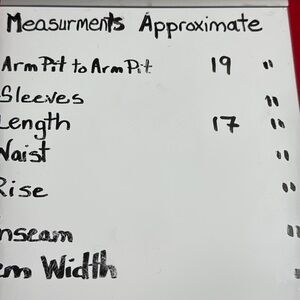 Measurments Approximate
Arm Pit to Arm Pit 19 "
Sleeves "
Length 17 "
Waist "
Rise "
nseam "
em Width "